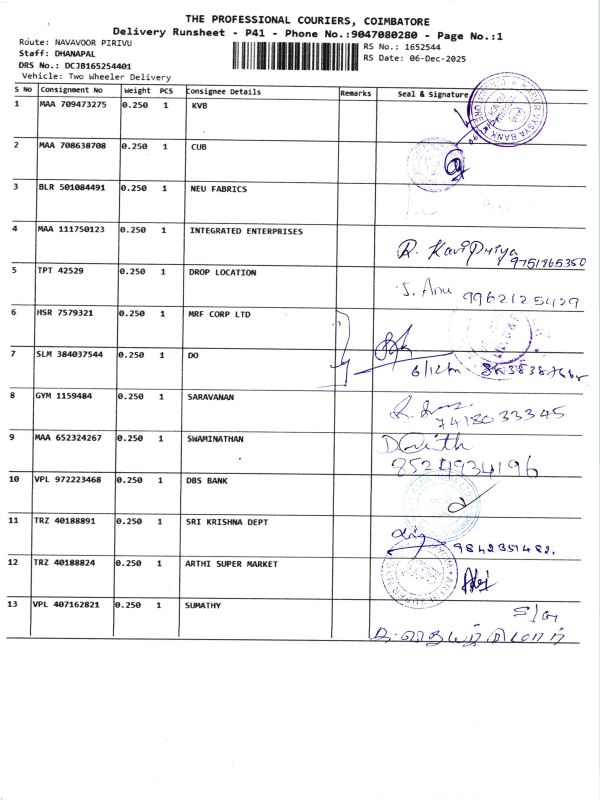 THE PROFESSIONAL COURIERS, COIMBATORE
Delivery Runsheet - P41 - Phone No.:9047080280 - Page No.:1
Route: NAVAVOOR PIRIVU
Staff: DHANAPAL
DRS No.: DCJB165254401
Vehicle: Two Wheeler Delivery
RS No.: 1652544
RS Date: 06-Dec-2025
S No Consignment No Weight PCS Consignee Details Remarks Seal & Signature
1 MAA 709473275 0.250 1 KVB
2 MAA 708638708 0.250 1 CUB
3 BLR 501084491 0.250 1 NEU FABRICS
4 MAA 111750123 0.250 1 INTEGRATED ENTERPRISES
R. Kavi Priya
9751865350
5 TPT 42529 0.250 1 DROP LOCATION
S. Anu 9962125429
6 HSR 7579321 0.250 1 MRF CORP LTD
7 SLM 384037544 0.250 1 DO
8 GYM 1159484 0.250 1 SARAVANAN
7418033345
9 MAA 652324267 0.250 1 SWAMINATHAN
8524934196
10 VPL 972223468 0.250 1 DBS BANK
11 TRZ 40188891 0.250 1 SRI KRISHNA DEPT
9842351482.
12 TRZ 40188824 0.250 1 ARTHI SUPER MARKET
13 VPL 407162821 0.250 1 SUMATHY